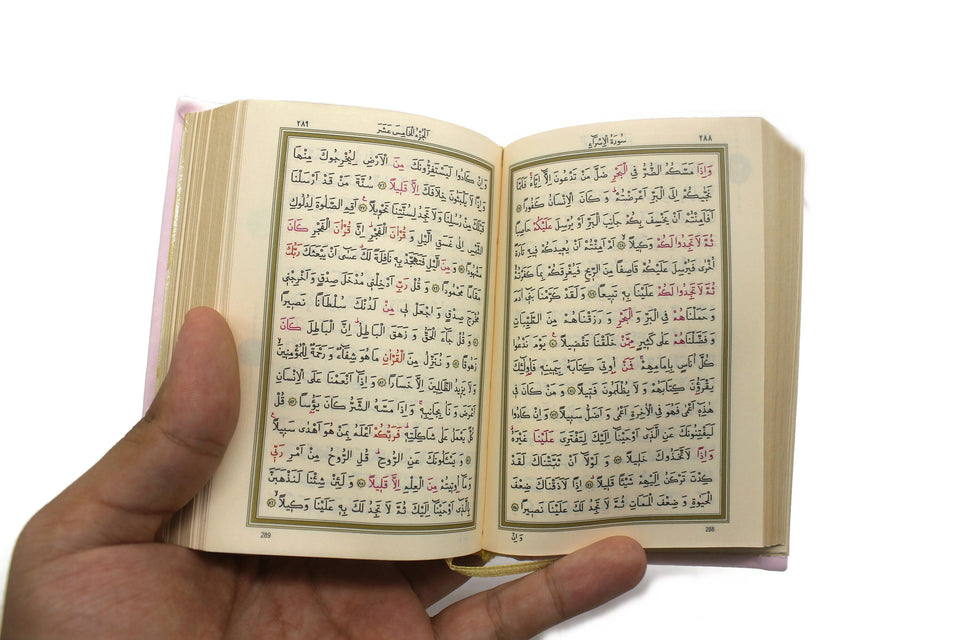 سُورَةُ الْإِسْرَاءِ ٢٨٨
وَاِذَا مَسَّكُمُ الضُّرُّ فِي الْبَحْرِ ضَلَّ مَنْ تَدْعُونَ اِلَّا اِيَّاهُ فَلَمَّا
نَجّٰيكُمْ اِلَى الْبَرِّ اَعْرَضْتُمْ وَكَانَ الْاِنْسَانُ كَفُورًا ﴿٦٧﴾
اَفَاَمِنْتُمْ اَنْ يَخْسِفَ بِكُمْ جَانِبَ الْبَرِّ اَوْ يُرْسِلَ عَلَيْكُمْ حَاصِبًا
ثُمَّ لَا تَجِدُوا لَكُمْ وَكِيلًا ﴿٦٨﴾ اَمْ اَمِنْتُمْ اَنْ يُعِيدَكُمْ فِيهِ تَارَةً
اُخْرٰى فَيُرْسِلَ عَلَيْكُمْ قَاصِفًا مِنَ الرِّيحِ فَيُغْرِقَكُمْ بِمَا كَفَرْتُمْ
ثُمَّ لَا تَجِدُوا لَكُمْ عَلَيْنَا بِهِ تَبِيعًا ﴿٦٩﴾ وَلَقَدْ كَرَّمْنَا بَنِي اٰدَمَ
وَحَمَلْنَاهُمْ فِي الْبَرِّ وَالْبَحْرِ وَرَزَقْنَاهُمْ مِنَ الطَّيِّبَاتِ
وَفَضَّلْنَاهُمْ عَلٰى كَثِيرٍ مِمَّنْ خَلَقْنَا تَفْضِيلًا ﴿٧٠﴾ يَوْمَ نَدْعُوا
كُلَّ اُنَاسٍ بِاِمَامِهِمْ فَمَنْ اُوتِيَ كِتَابَهُ بِيَمِينِهِ فَاُولٰٓئِكَ
يَقْرَؤُنَ كِتَابَهُمْ وَلَا يُظْلَمُونَ فَتِيلًا ﴿٧١﴾ وَمَنْ كَانَ فِي
هٰذِهِ اَعْمٰى فَهُوَ فِي الْاٰخِرَةِ اَعْمٰى وَاَضَلُّ سَبِيلًا ﴿٧٢﴾ وَاِنْ كَادُوا
لَيَفْتِنُونَكَ عَنِ الَّذِي اَوْحَيْنَا اِلَيْكَ لِتَفْتَرِيَ عَلَيْنَا غَيْرَهُ
وَاِذًا لَاتَّخَذُوكَ خَلِيلًا ﴿٧٣﴾ وَلَوْلَا اَنْ ثَبَّتْنَاكَ لَقَدْ
كِدْتَ تَرْكَنُ اِلَيْهِمْ شَيْئًا قَلِيلًا ﴿٧٤﴾ اِذًا لَاَذَقْنَاكَ ضِعْفَ
الْحَيٰوةِ وَضِعْفَ الْمَمَاتِ ثُمَّ لَا تَجِدُ لَكَ عَلَيْنَا نَصِيرًا ﴿٧٥﴾
وَاِنْ
288
٢٨٩ اَلْجُزْءُ الْخَامِسَ عَشَرَ
وَاِنْ كَادُوا لَيَسْتَفِزُّونَكَ مِنَ الْاَرْضِ لِيُخْرِجُوكَ مِنْهَا
وَاِذًا لَا يَلْبَثُونَ خِلَافَكَ اِلَّا قَلِيلًا ﴿٧٦﴾ سُنَّةَ مَنْ قَدْ اَرْسَلْنَا
قَبْلَكَ مِنْ رُسُلِنَا وَلَا تَجِدُ لِسُنَّتِنَا تَحْوِيلًا ﴿٧٧﴾ اَقِمِ الصَّلٰوةَ لِدُلُوكِ
الشَّمْسِ اِلٰى غَسَقِ الَّيْلِ وَقُرْاٰنَ الْفَجْرِ اِنَّ قُرْاٰنَ الْفَجْرِ كَانَ
مَشْهُودًا ﴿٧٨﴾ وَمِنَ الَّيْلِ فَتَهَجَّدْ بِهِ نَافِلَةً لَكَ عَسٰٓى اَنْ يَبْعَثَكَ رَبُّكَ
مَقَامًا مَحْمُودًا ﴿٧٩﴾ وَقُلْ رَبِّ اَدْخِلْنِي مُدْخَلَ صِدْقٍ وَاَخْرِجْنِي
مُخْرَجَ صِدْقٍ وَاجْعَلْ لِي مِنْ لَدُنْكَ سُلْطَانًا نَصِيرًا
﴿٨٠﴾ وَقُلْ جَاءَ الْحَقُّ وَزَهَقَ الْبَاطِلُ اِنَّ الْبَاطِلَ كَانَ
زَهُوقًا ﴿٨١﴾ وَنُنَزِّلُ مِنَ الْقُرْاٰنِ مَا هُوَ شِفَاءٌ وَرَحْمَةٌ لِلْمُؤْمِنِينَ
وَلَا يَزِيدُ الظَّالِمِينَ اِلَّا خَسَارًا ﴿٨٢﴾ وَاِذَا اَنْعَمْنَا عَلَى الْاِنْسَانِ
اَعْرَضَ وَنَاٰ بِجَانِبِهِ وَاِذَا مَسَّهُ الشَّرُّ كَانَ يَؤُسًا ﴿٨٣﴾ قُلْ
كُلٌّ يَعْمَلُ عَلٰى شَاكِلَتِهِ فَرَبُّكُمْ اَعْلَمُ بِمَنْ هُوَ اَهْدٰى سَبِيلًا
﴿٨٤﴾ وَيَسْـَٔلُونَكَ عَنِ الرُّوحِ قُلِ الرُّوحُ مِنْ اَمْرِ رَبِّي
وَمَا اُوتِيتُمْ مِنَ الْعِلْمِ اِلَّا قَلِيلًا ﴿٨٥﴾ وَلَئِنْ شِئْنَا لَنَذْهَبَنَّ
بِالَّذِي اَوْحَيْنَا اِلَيْكَ ثُمَّ لَا تَجِدُ لَكَ بِهِ عَلَيْنَا وَكِيلًا ﴿٨٦﴾
289